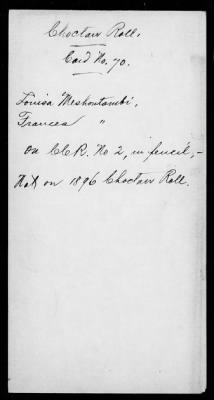 Choctaw Roll.
Card No. 70.
Louisa Meshontambi,
Frances "
on C.C.R. No 2, in pencil, -
Not on 1896 Choctaw Roll.